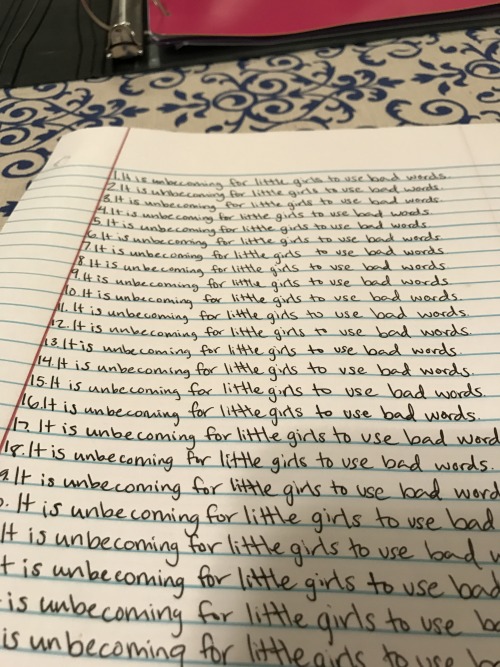 1. It is unbecoming for little girls to use bad words.
2. It is unbecoming for little girls to use bad words.
3. It is unbecoming for little girls to use bad words.
4. It is unbecoming for little girls to use bad words.
5. It is unbecoming for little girls to use bad words.
6. It is unbecoming for little girls to use bad words.
7. It is unbecoming for little girls to use bad words.
8. It is unbecoming for little girls to use bad words.
9. It is unbecoming for little girls to use bad words.
10. It is unbecoming for little girls to use bad words.
11. It is unbecoming for little girls to use bad words.
12. It is unbecoming for little girls to use bad words.
13. It is unbecoming for little girls to use bad words.
14. It is unbecoming for little girls to use bad words.
15. It is unbecoming for little girls to use bad words.
16. It is unbecoming for little girls to use bad words.
17. It is unbecoming for little girls to use bad word
18. It is unbecoming for little girls to use bad words.
9. It is unbecoming for little girls to use bad word
. It is unbecoming for little girls to use bad
It is unbecoming for little girls to use bad w
t is unbecoming for little girls to use bad
is unbecoming for little girls to use ba
is unbecoming for little girls to use